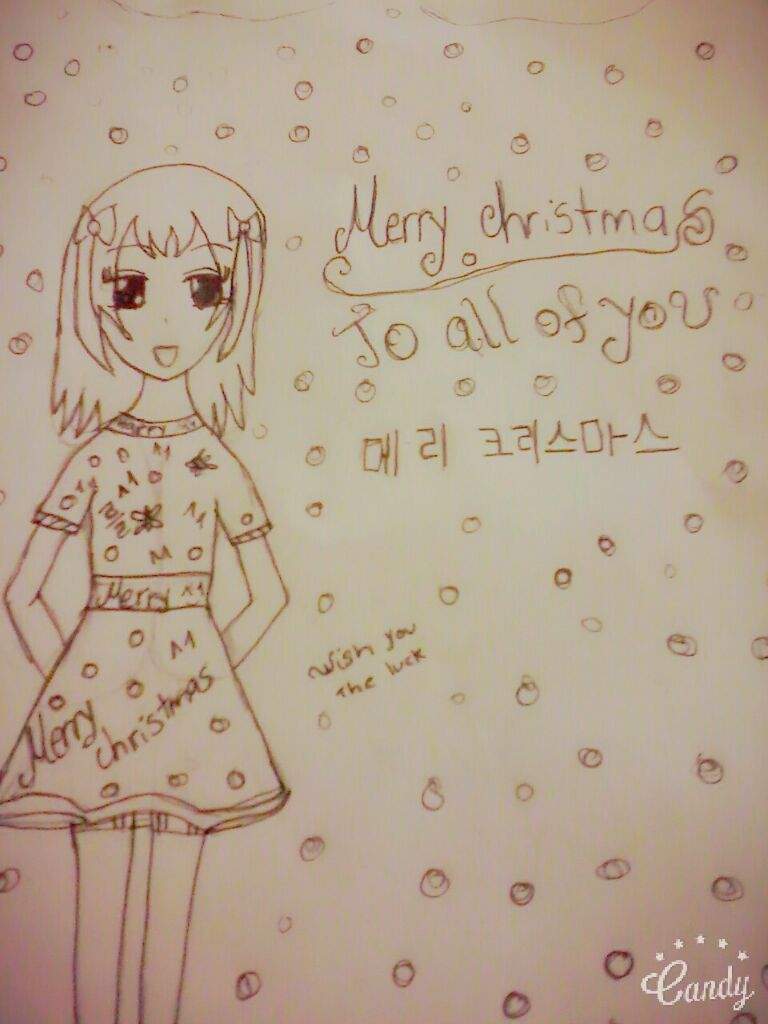 Merry christmas
To all of you
메리 크리스마스
Merry
Merry
wish you
the luck
Merry
christmas
Candy